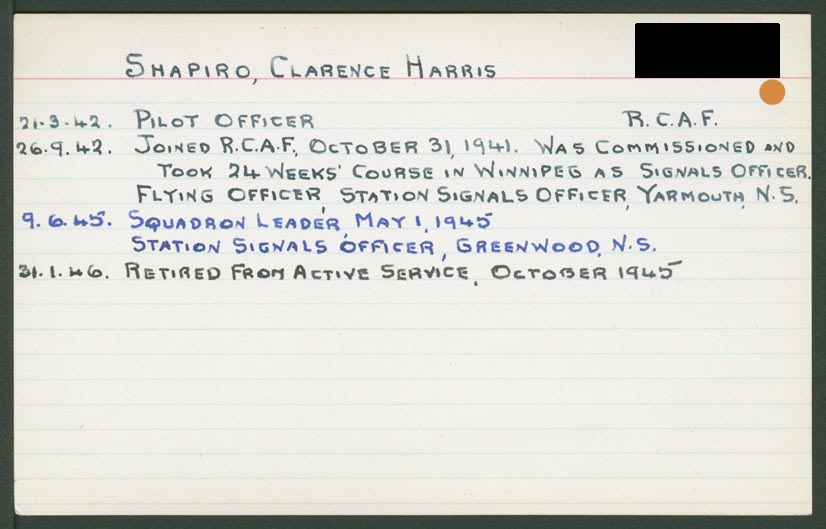 SHAPIRO, CLARENCE HARRIS
21.3.42. PILOT OFFICER R.C.A.F.
26.9.42. JOINED R.C.A.F., OCTOBER 31, 1941. WAS COMMISSIONED AND
TOOK 24 WEEKS' COURSE IN WINNIPEG AS SIGNALS OFFICER.
FLYING OFFICER, STATION SIGNALS OFFICER, YARMOUTH, N.S.
9.6.45. SQUADRON LEADER, MAY 1, 1945
STATION SIGNALS OFFICER, GREENWOOD, N.S.
31.1.46. RETIRED FROM ACTIVE SERVICE, OCTOBER 1945